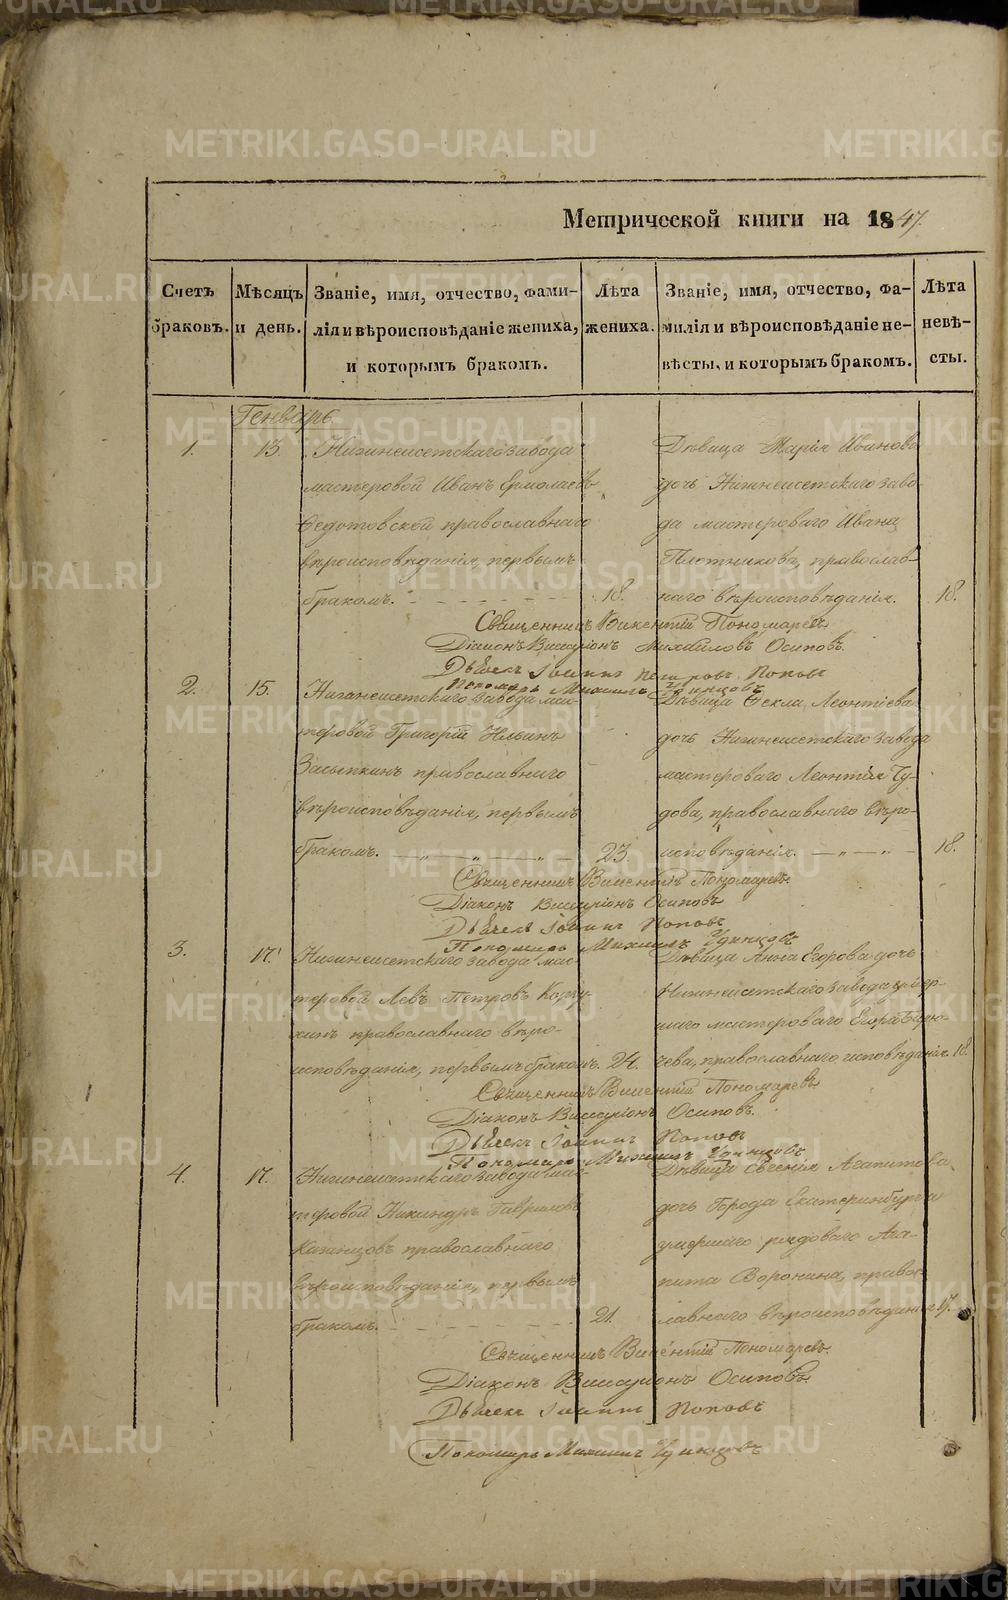 Метрической книги на 1847.
Счетъ браковъ.
Мѣсяцъ и день.
Званіе, имя, отчество, фами-
лія и вѣроисповѣданіе жениха,
и которымъ бракомъ.
Лѣта жениха.
Званіе, имя, отчество, фа-
милія и вѣроисповѣданіе не-
вѣсты, и которымъ бракомъ.
Лѣта невѣ-
сты.
Генварь
1.
13.
Нижнеисетскаго завода
мастеровой Иванъ Ермолаевъ
Федотовской православнаго
вѣроисповѣданія, первымъ
бракомъ.
18.
Дѣвица Марія Иванова
дочь Нижнеисетскаго заво-
да мастероваго Ивана
Плотникова, православ-
наго вѣроисповѣданія.
18.
Священникъ Викентій Пономаревъ
Діаконъ Виссаріонъ Михайловъ Осиповъ.
Дьячекъ Іоаннъ Петровъ Поповъ
Пономарь Михаилъ
2.
15.
Нижнеисетскаго завода мас-
теровой Григорій Ильинъ
Засыпкинъ православнаго
вѣроисповѣданія, первымъ
бракомъ.
23.
Дѣвица Фекла Леонтіева
дочь Нижнеисетскаго завода
мастероваго Леонтія Чу-
дова, православнаго вѣро-
исповѣданія.
18.
Священникъ Викентій Пономаревъ.
Діаконъ Виссаріонъ Осиповъ
Дьячекъ Іоаннъ Поповъ
Пономарь Михаилъ
3.
17.
Нижнеисетскаго завода мас-
теровой Левъ Петровъ
православнаго вѣро-
исповѣданія, первымъ бракомъ.
24.
Дѣвица Анна Егорова дочь
Нижнеисетскаго завода умер-
шаго мастероваго Егора Бирю-
чева, православнаго исповѣданія.
18.
Священникъ Викентій Пономаревъ
Діаконъ Виссаріонъ Осиповъ.
Дьячекъ Іоаннъ Поповъ
Пономарь Михаилъ
4.
17.
Нижнеисетскаго завода мас-
теровой Никандръ Гавриловъ
Казанцовъ православнаго
вѣроисповѣданія, первымъ
бракомъ.
21.
Дѣвица Евгенія Агапитова
дочь Города Екатеринбурга
умершаго рядоваго Ага-
пита Воронина, право-
славнаго вѣроисповѣданія
17.
Священникъ Викентій Пономаревъ.
Діаконъ Виссаріонъ Осиповъ
Дьячекъ Іоаннъ Поповъ
Пономарь Михаилъ
METRIKI.GASO-URAL.RU